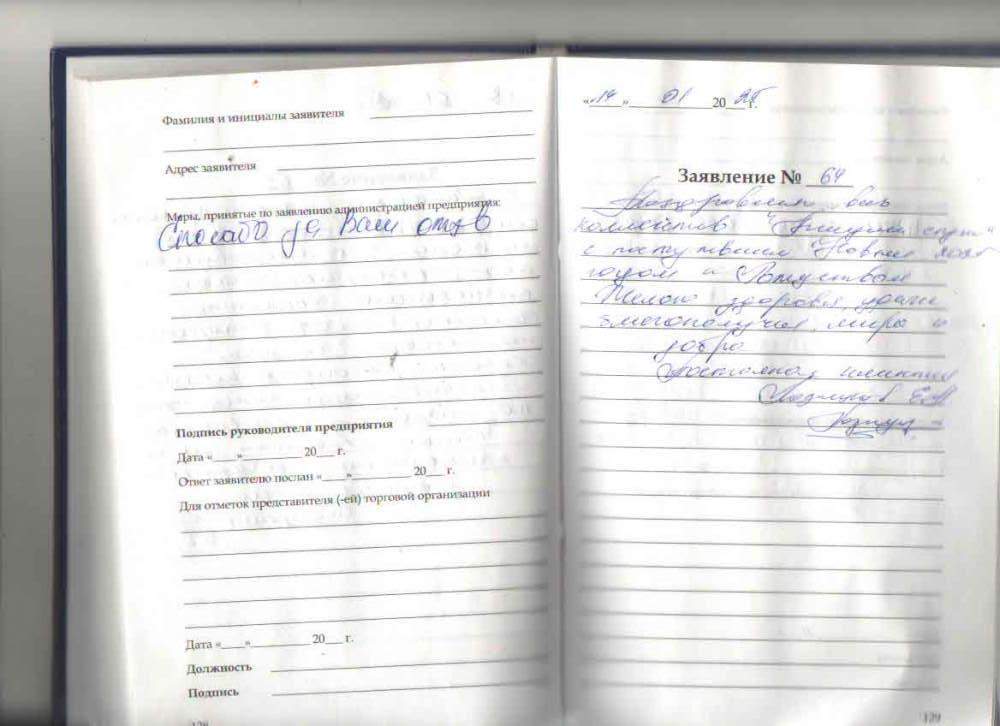 Фамилия и инициалы заявителя
Адрес заявителя
Меры, принятые по заявлению администрацией предприятия:
Спасибо за Ваш отзыв
Подпись руководителя предприятия
Дата «___»_________ 20___ г.
Ответ заявителю послан «___»_________ 20___ г.
Для отметок представителя (-ей) торговой организации
Дата «___»_________ 20___ г.
Должность
Подпись
128
«14» 01 2025 г.
Заявление № 64
Поздравляю весь
коллектив
с наступившим Новым 2025
годом и Рождеством
Желаю здоровья, удачи
благополучия, мира и
добра
129